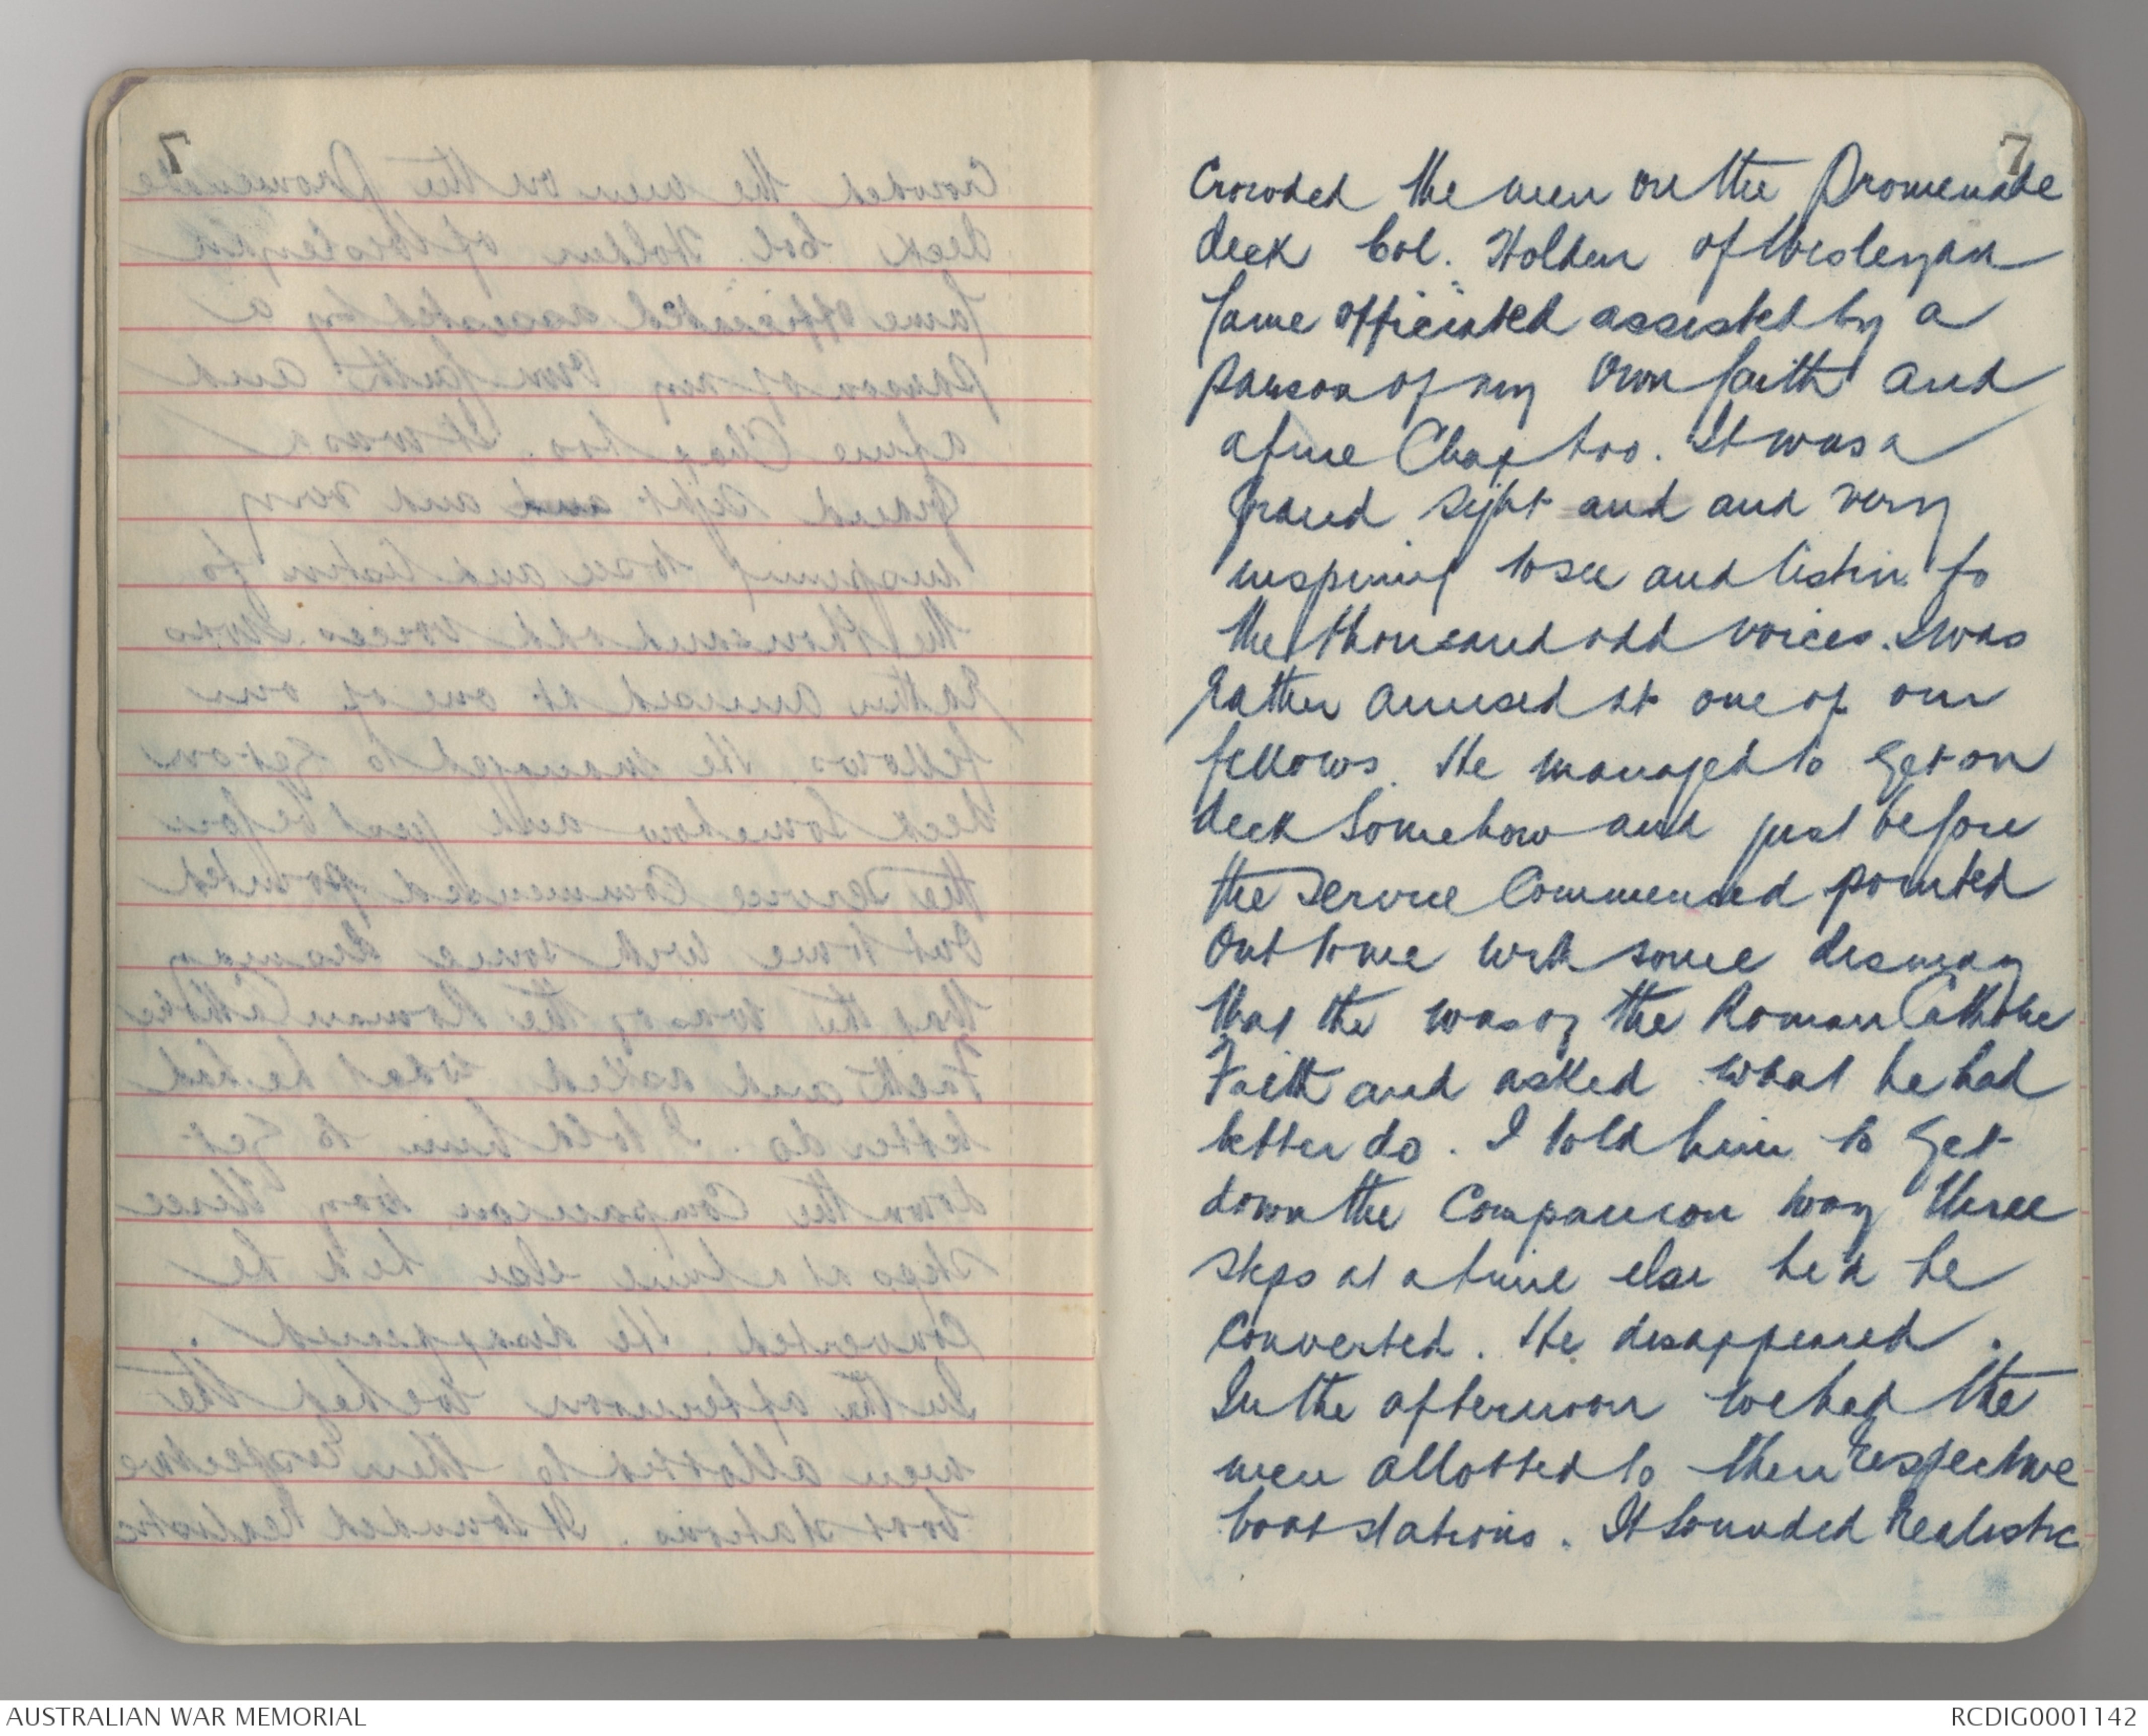 7
7
Crowded the men on the Promenade
deck Col. Holden of Wesleyan
fame officiated assisted by a
parson of my own faith and
a fine Chap too. It was a
grand sight and and very
inspiring to see and listin to
the thousand odd voices. I was
Rather amused at one of our
fellows. He managed to get on
deck Somehow and just before
the Service Commenced pointed
Out to me with some dismay
that the was of the Roman Catholic
Faith and asked what he had
better do. I told him to get
down the Companion way three
steps at a time else he'd be
Converted. He disappeared.
In the afternoon we had the
men allotted to their respective
boat stations. It Sounded Realistic
AUSTRALIAN WAR MEMORIAL
RCDIG0001142